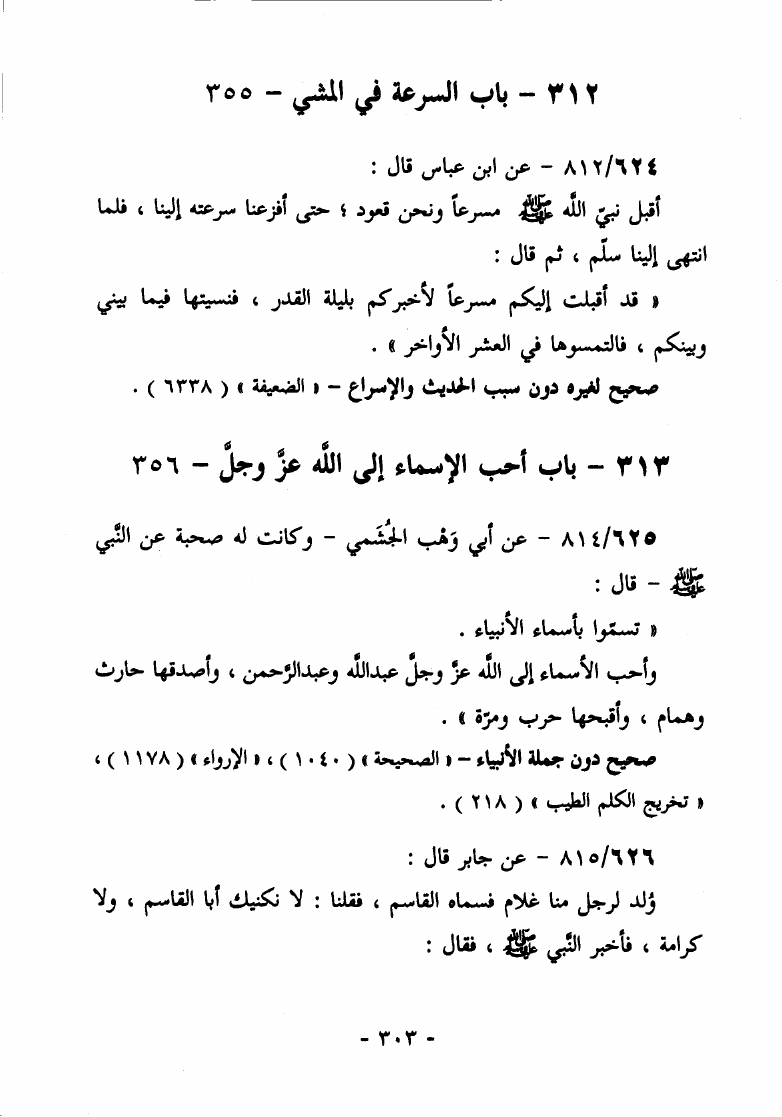 ٣١٢ – باب السرعة في المشي – ٣٥٥
٨١٢/٦٢٤ – عن ابن عباس قال :
أقبل نبيّ اللَّه ﷺ مسرعاً ونحن قعود ؛ حتى أفزعنا سرعته إلينا ، فلما
انتهى إلينا سلّم ، ثم قال :
« قد أقبلت إليكم مسرعاً لأخبركم بليلة القدر ، فنسيتها فيما بيني
وبينكم ، فالتمسوها في العشر الأواخر » .
صحيح لغيره دون سبب الحديث والإسراع – « الضعيفة » ( ٦٣٣٨ ) .
٣١٣ – باب أحب الإسماء إلى اللَّه عزَّ وجلَّ – ٣٥٦
٨١٤/٦٢٥ – عن أبي وَهْب الجُشَمي – وكانت له صحبة عن النَّبي
ﷺ – قال :
« تسمّوا بأسماء الأنبياء .
وأحب الأسماء إلى اللَّه عزَّ وجلَّ عبداللَّه وعبدالرَّحمن ، وأصدقها حارث
وهمام ، وأقبحها حرب ومرّة » .
صحيح دون جملة الأنبياء – « الصحيحة » ( ١٠٤٠ ) ، « الإرواء » ( ١١٧٨ ) ،
« تخريج الكلم الطيب » ( ٢١٨ ) .
٨١٥/٦٢٦ – عن جابر قال :
وُلد لرجل منا غلام فسماه القاسم ، فقلنا : لا نكنيك أبا القاسم ، ولا
كرامة ، فأخبر النَّبي ﷺ ، فقال :
- ٣٠٣ -